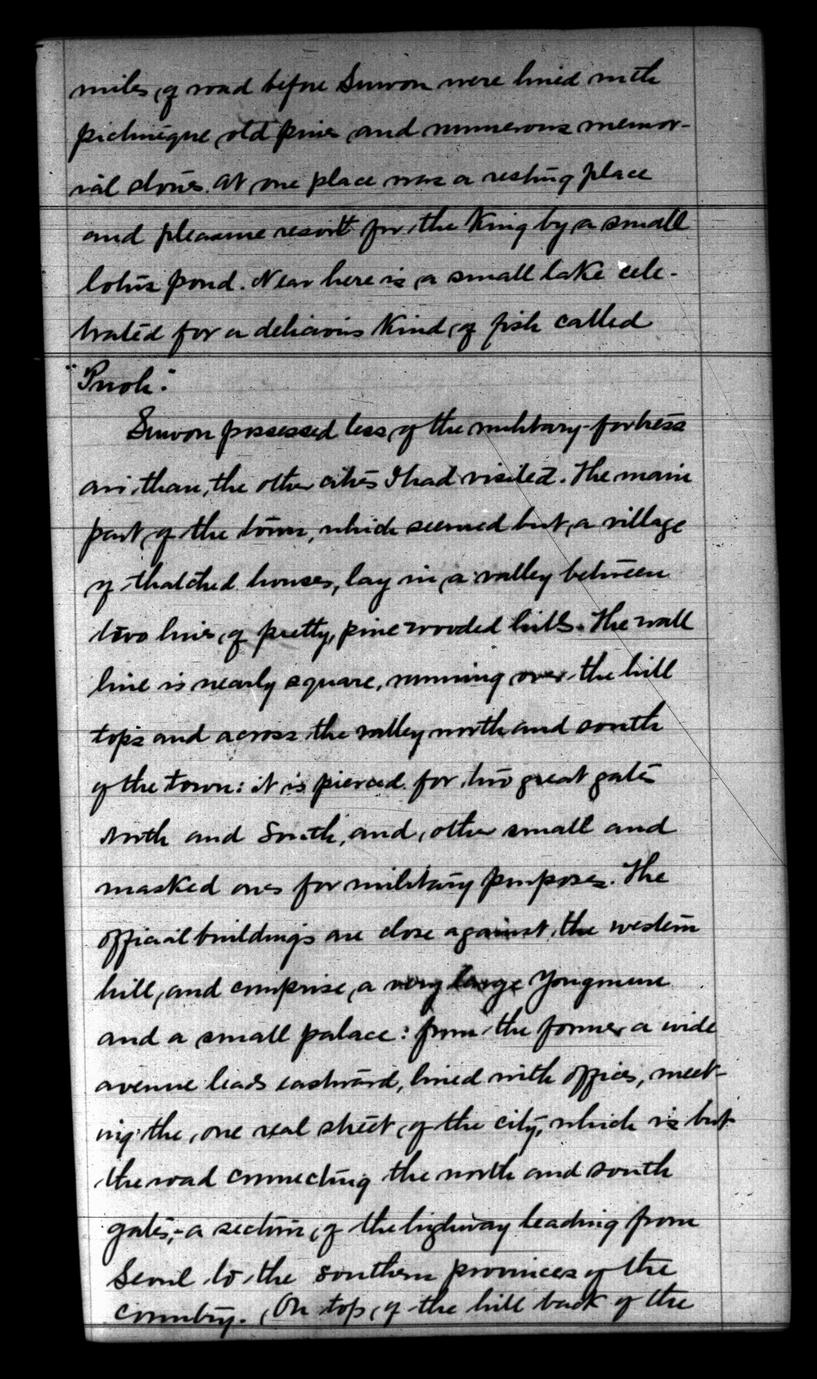 miles of road before Suwon were lined with
pichuresque old pines and numerous memor-
ial stones. At one place was a resting place
and pleasure resort for the King by a small
lotus pond. Near here is a small lake cele-
brated for a delicious kind of fish called

Suwon possessed less of the military-fortress
air than the other cities I had visited. The main
part of the town, which seemed but a village
of thatched houses, lay in a valley between
two lines of pretty, pine wooded hills. The wall
line is nearly square, running over the hill
tops and across the valley north and south
of the town: it is pierced for two great gates
North and South, and other small and
masked ones for military purposes. The
official buildings are close against the western
hill, and comprise a very large Yongmun
and a small palace: from the former a wide
avenue leads eastward, lined with offices, meet-
ing the one real street of the city, which is but
the road connecting the north and south
gates,- a section of the highway leading from
Seoul to the southern provinces of the
country. On top of the hill back of the